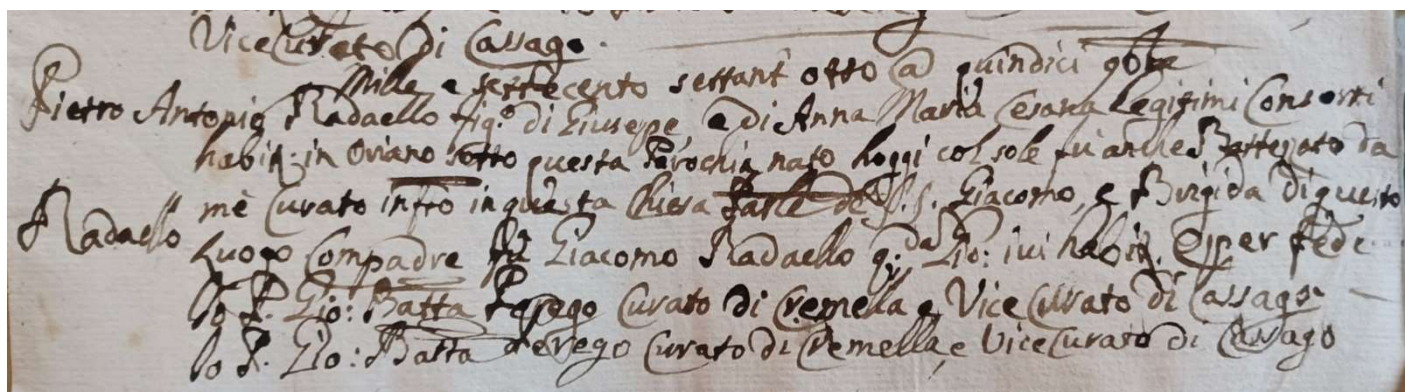 Vice Curato Di Cassago.
Mille, e settecento settant'otto @ quindici 9bre
Pietro Antonio Radaello fig.o di Giuseppe, e Di Anna Maria Cesana legitimi Consorti
habit: in Oriano sotto questa Parochia nato hoggi col sole fù anche Battezato da
mè Curato infro in questa Chiesa de S.S. Giacomo, e Brigida Di questo
Radaello Luogo Compadre fù Giacomo Radaello q.da Gio: ivi habit. Et per fede
Io P. Gio: Batta Perego Curato di Cremella e Vice Curato di Cassago
Io P. Gio: Batta Perego Curato Di Cremella, e Vice Curato di Cassago